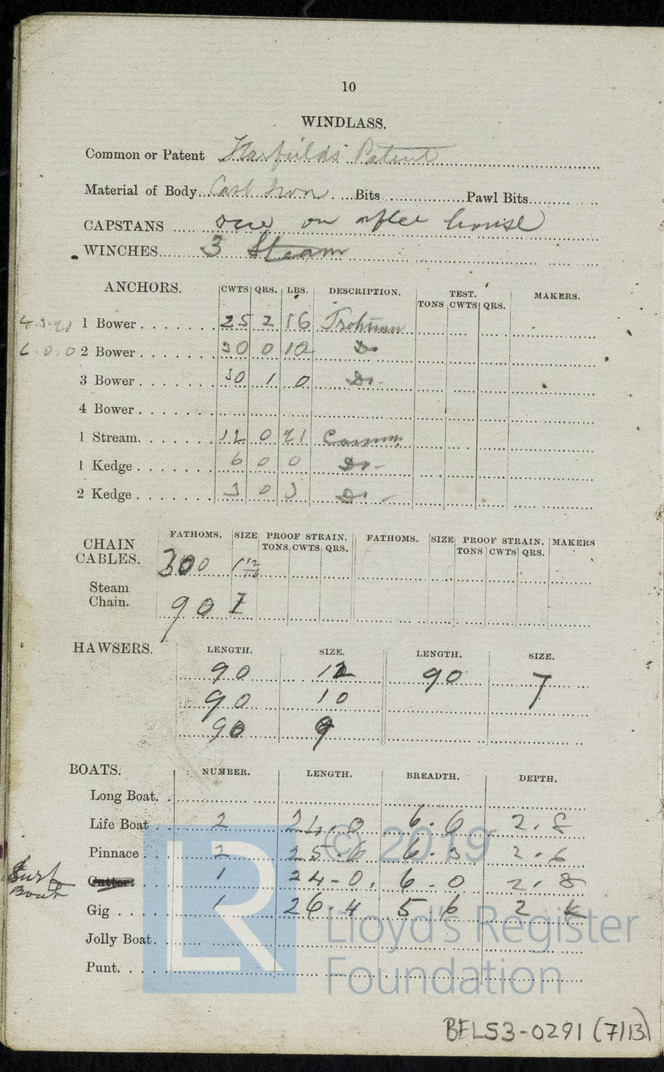 10
WINDLASS.
Common or Patent Harfields Patent
Material of Body. Cast Iron Bits Pawl Bits
CAPSTANS one on after house
WINCHES 3 Steam
ANCHORS. CWTS QRS. LBS. DESCRIPTION. TEST. MAKERS.
TONS CWTS QRS.
1 Bower 25 2 16 Trotman
6.0.0 2 Bower 30 0 12 Do
3 Bower 30 1 0 Do.
4 Bower
1 Stream. 12 0 21 Common
1 Kedge 6 0 0 Do-
2 Kedge 3 0 3 Do-
CHAIN CABLES. FATHOMS. SIZE PROOF STRAIN. FATHOMS. SIZE PROOF STRAIN. MAKERS
TONS CWTS QRS. TONS CWTS QRS.
300 1 13/16
Steam Chain.
90
HAWSERS. LENGTH. SIZE. LENGTH. SIZE.
90 12 90 7
90 10
90 9
BOATS. NUMBER. LENGTH. BREADTH. DEPTH.
Long Boat.
Life Boat 2 2.8
Pinnace 2 25.6
Surf Boat Cutter. 1 24-0. 6-0 2.8
Gig 1 26.4 5 6 2
Jolly Boat.
Punt.
© 2019
LR
Lloyd's Register
Foundation
BEL53-0291 (7/13)